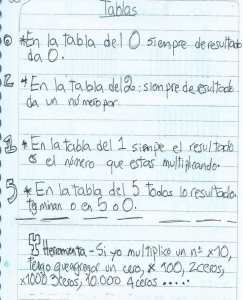 Tablas
0 *En la tabla del 0 siempre de resultado
da 0.
2 *En la tabla del 2: siempre de resultado
da un número par.
1 *En la tabla del 1 siempre el resultado
es el número que estas multiplicando.
5 *En la tabla del 5 todos lo resultados
terminan o en 5 o 0.
Herramienta - Si yo multiplico un nº x10,
tengo que agregar un cero, x 100, 2 ceros,
x1000 3 ceros, 10.000 4 ceros .....